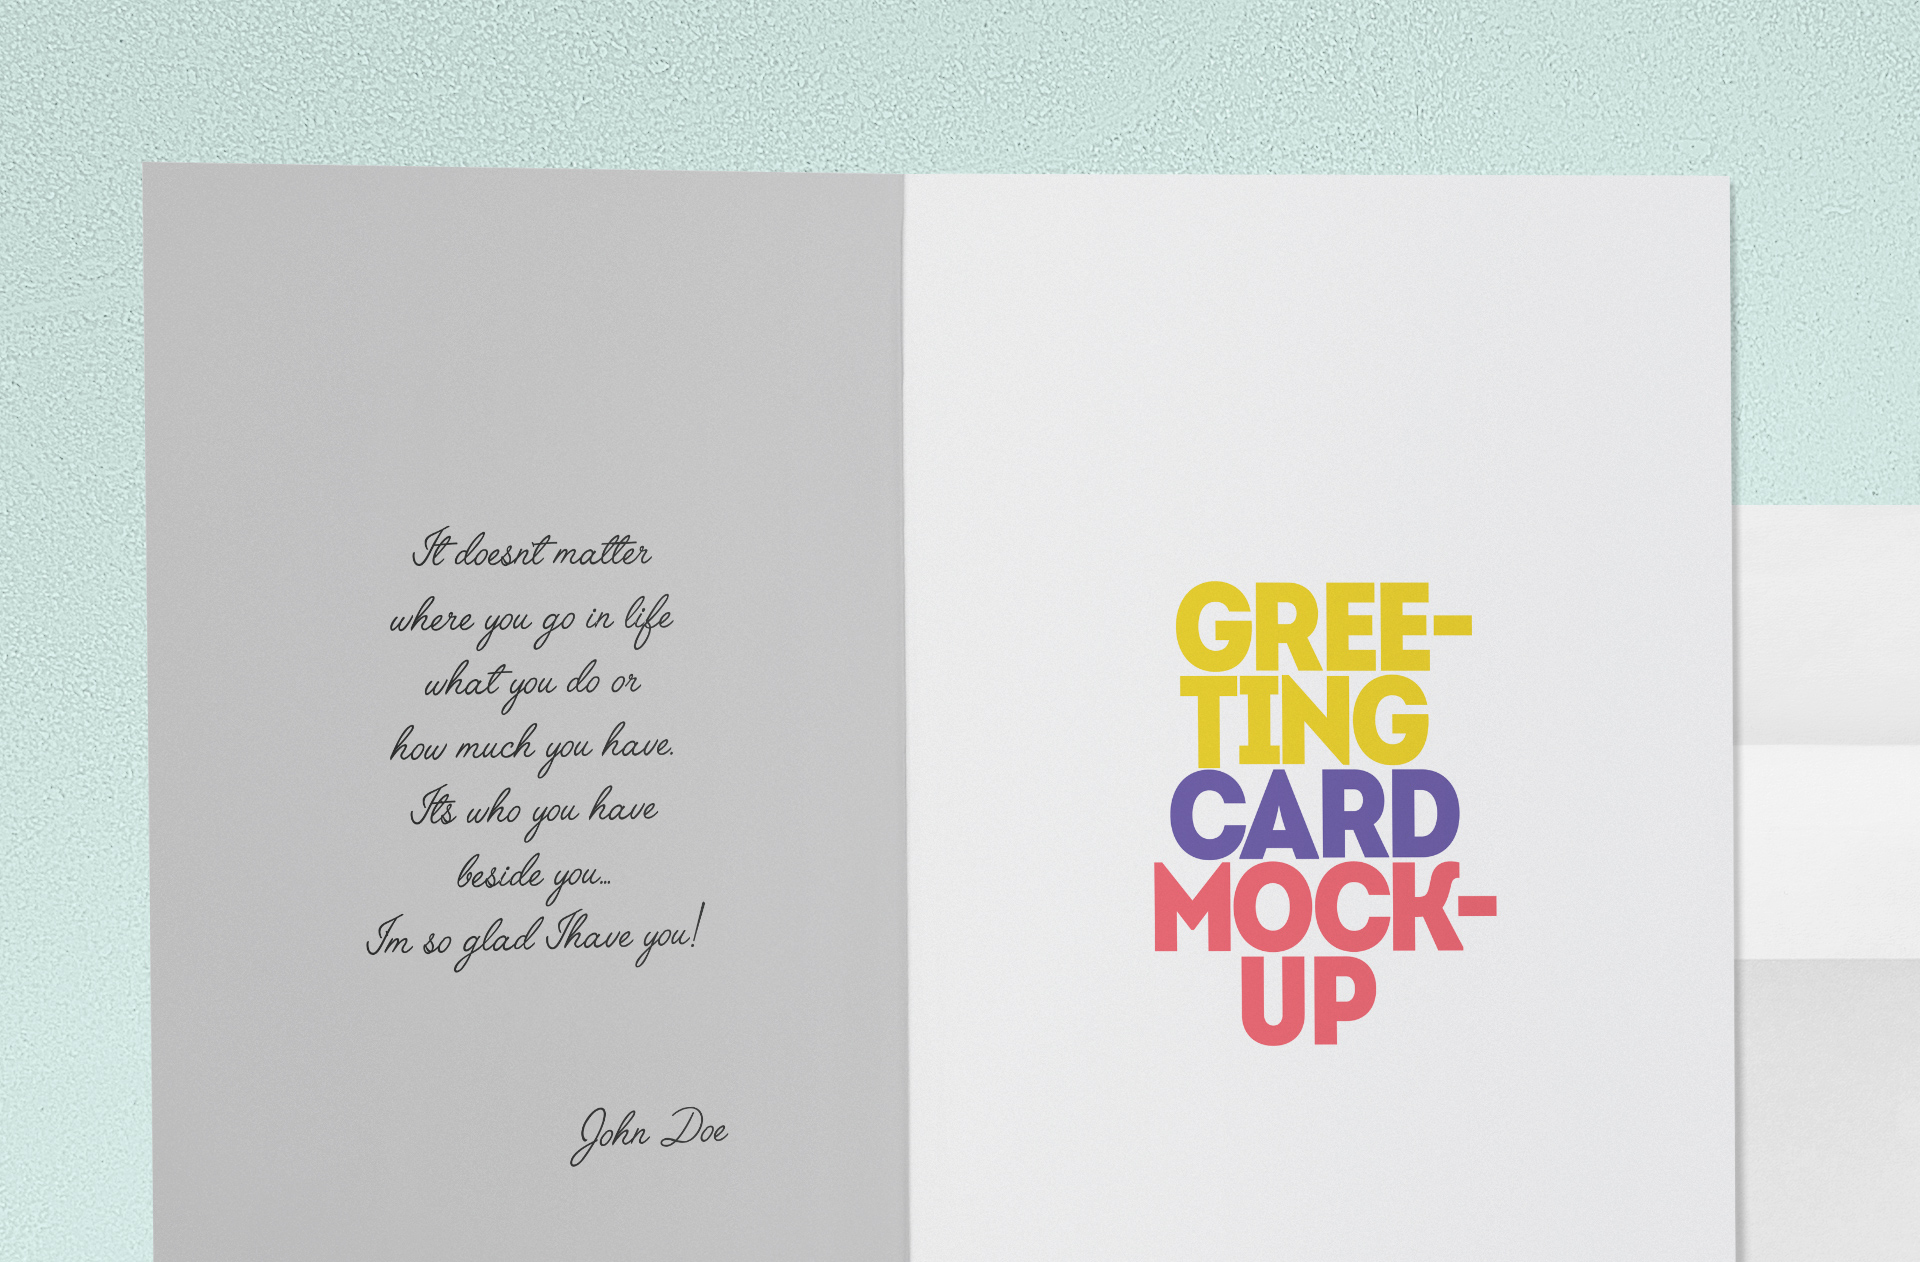 It doesnt matter
where you go in life
what you do or
how much you have.
Its who you have
beside you...
Im so glad Ihave you!
John Doe
GREE-
TING
CARD
MOCK-
UP